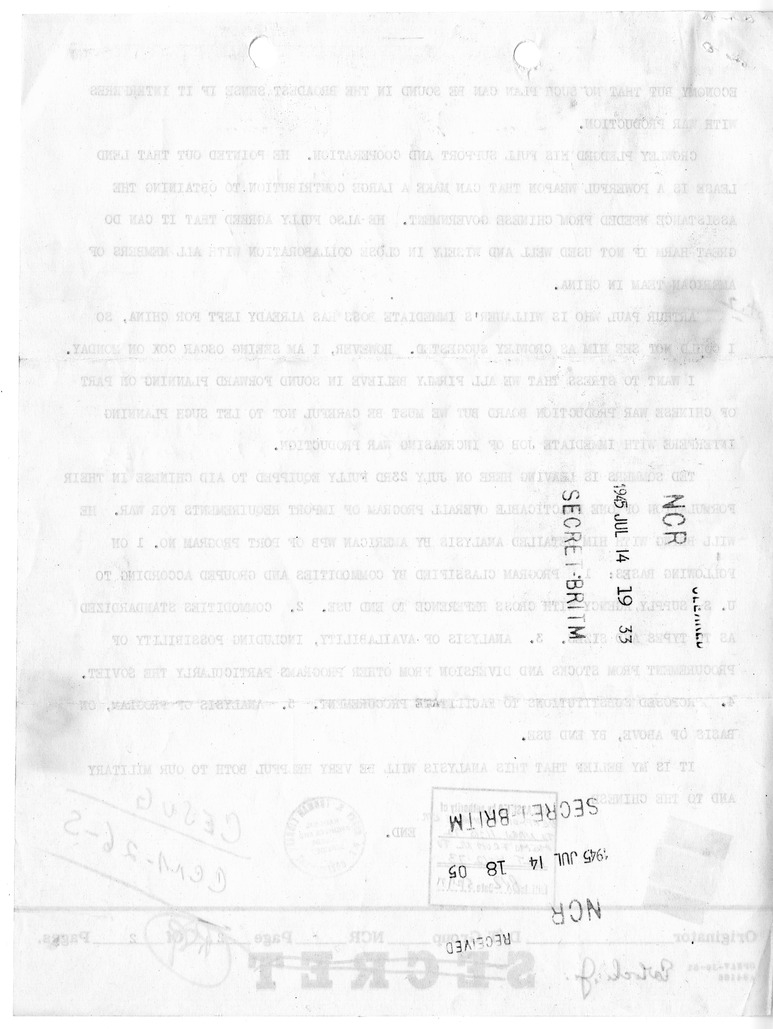 ECONOMY BUT THAT NO SUCH PLAN CAN BE SOUND IN THE BROADEST SENSE IF IT INTERFERES
WITH WAR PRODUCTION.
CROWLEY PLEDGED HIS FULL SUPPORT AND COOPERATION. HE POINTED OUT THAT LEND
LEASE IS A POWERFUL WEAPON THAT CAN MAKE A LARGE CONTRIBUTION TO OBTAINING THE
ASSISTANCE NEEDED FROM CHINESE GOVERNMENT. HE ALSO FULLY AGREED THAT IT CAN DO
GREAT HARM IF NOT USED WELL AND WISELY IN CLOSE COLLABORATION WITH ALL MEMBERS OF
AMERICAN TEAM IN CHINA.
ARTHUR PAUL WHO IS WILLAUER'S IMMEDIATE BOSS HAS ALREADY LEFT FOR CHINA, SO
I COULD NOT SEE HIM AS CROWLEY SUGGESTED. HOWEVER, I AM SEEING OSCAR COX ON MONDAY.
I WANT TO STRESS THAT WE ALL FIRMLY BELIEVE IN SOUND FORWARD PLANNING ON PART
OF CHINESE WAR PRODUCTION BOARD BUT WE MUST BE CAREFUL NOT TO LET SUCH PLANNING
INTERFERE WITH IMMEDIATE JOB OF INCREASING WAR PRODUCTION.
TED IS LEAVING HERE ON JULY 23RD FULLY EQUIPPED TO AID CHINESE IN THEIR
FORMULATION OF ONE PRACTICABLE OVERALL PROGRAM OF IMPORT REQUIREMENTS FOR WAR. HE
WILL BRING WITH HIM DETAILED ANALYSIS BY AMERICAN WPB OF PORT PROGRAM NO. 1 ON
FOLLOWING BASES: 1. PROGRAM CLASSIFIED BY COMMODITIES AND GROUPED ACCORDING TO
U. S. SUPPLY AGENCY WITH CROSS REFERENCE TO END USE. 2. COMMODITIES STANDARDIZED
AS TO TYPES AND SIZES. 3. ANALYSIS OF AVAILABILITY, INCLUDING POSSIBILITY OF
PROCUREMENT FROM STOCKS AND DIVERSION FROM OTHER PROGRAMS PARTICULARLY THE SOVIET.
4. PROPOSED SUBSTITUTIONS TO FACILITATE PROCUREMENT. 5. ANALYSIS OF PROGRAM, ON
BASIS OF ABOVE, BY END USE.
IT IS MY BELIEF THAT THIS ANALYSIS WILL BE VERY HELPFUL BOTH TO OUR MILITARY
AND TO THE CHINESE.
END.
CLEARED
NCR
1945 JUL 14 19 33
SECRET-BRITM
RECEIVED
NCR
1945 JUL 14 18 05
SECRET-BRITM
Originator Group NCR Page 2 Of 2 Pages.
SECRET